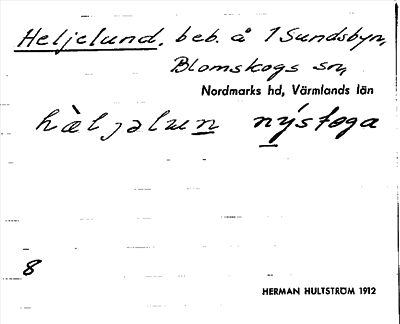 Heljelund, beb. å 1 Sundsbyn,
Blomskogs sn,
Nordmarks hd, Värmlands län
hæ̀ljəlun nýstoga
8
HERMAN HULTSTRÖM 1912